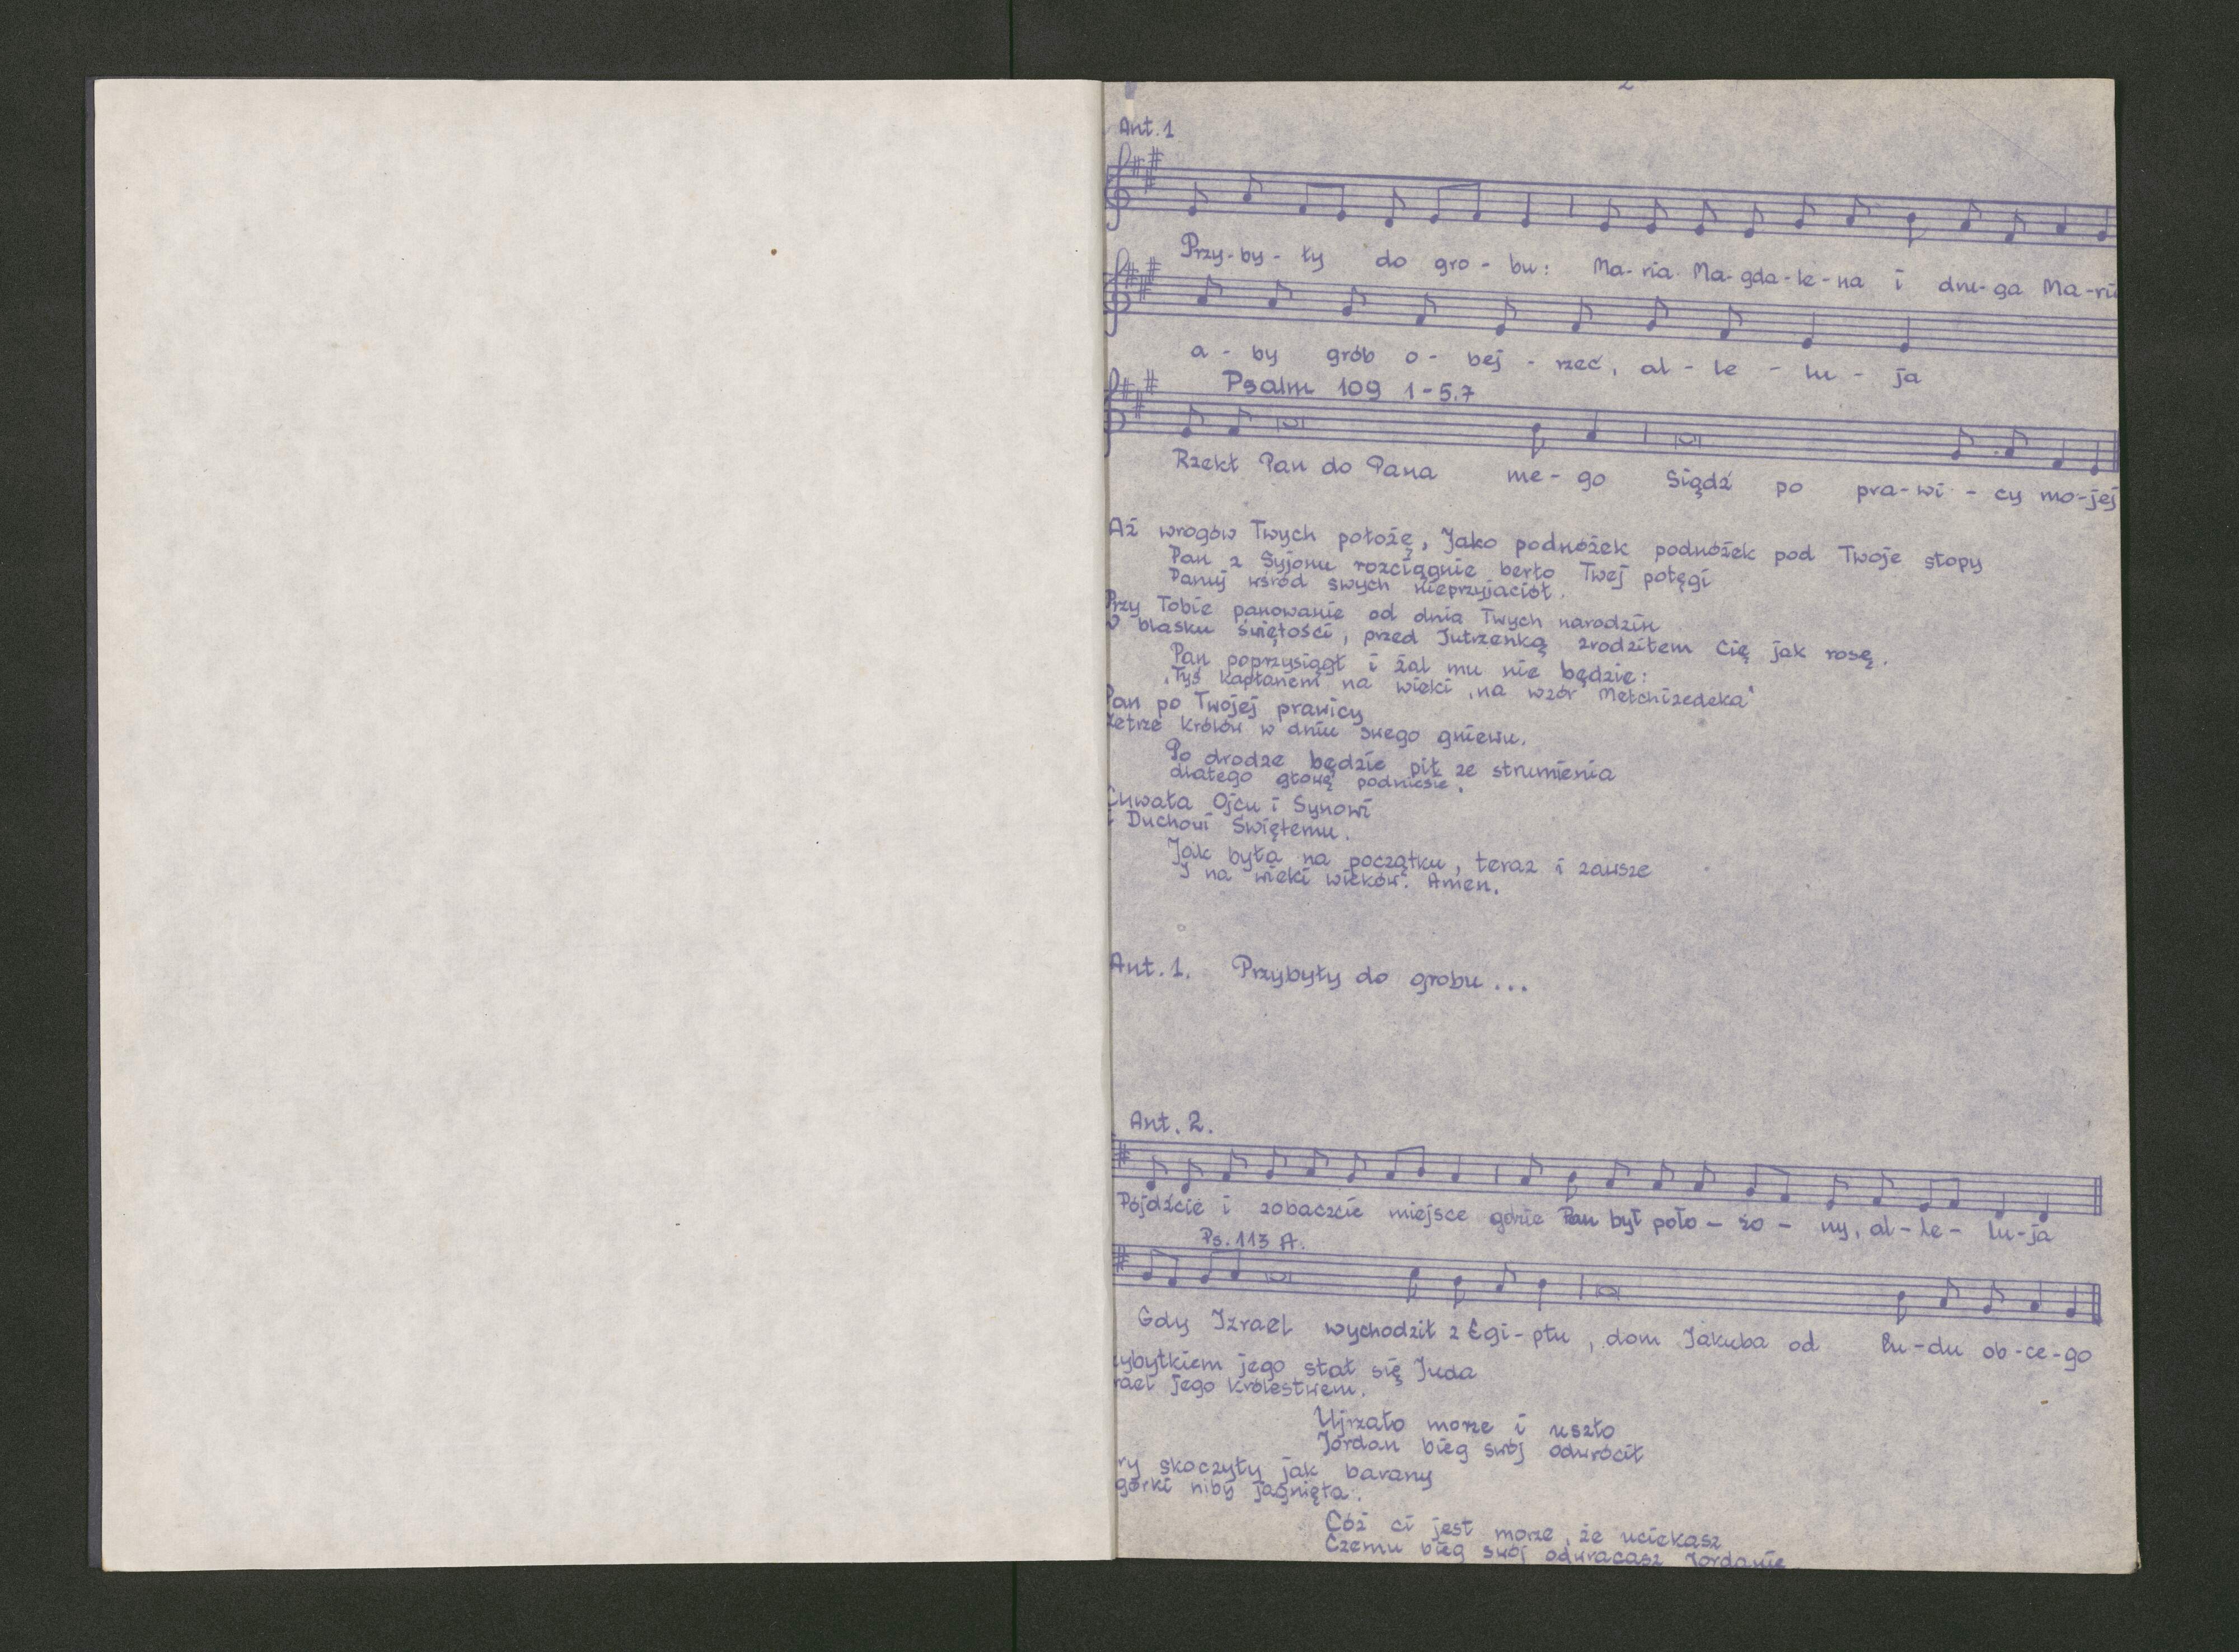 2
Ant. 1
Przy-by-ły do gro-bu: Ma-ria Ma-gda-le-na i dru-ga Ma-ri
a-by grób o-bej-rzeć, al-le-lu-ja
Psalm 109 1-5.7
Rzekł Pan do Pana me-go Siądź po pra-wi-cy mo-jej
Aż wrogów Twych położę, Jako podnóżek podnóżek pod Twoje stopy
Pan z Syjonu rozciągnie berło Twej potęgi
Panuj wśród swych nieprzyjaciół.
Przy Tobie panowanie od dnia Twych narodzin
W blasku świętości, przed Jutrzenką zrodziłem Cię jak rosę.
Pan poprzysiągł i żal mu nie będzie:
"Tyś kapłanem na wieki, na wzór Melchizedeka"
Pan po Twojej prawicy
zetrze królów w dniu swego gniewu.
Po drodze będzie pił ze strumienia
dlatego głowę podniesie.
Chwała Ojcu i Synowi
i Duchowi Świętemu.
Jak była na początku, teraz i zawsze
I na wieki wieków. Amen.
Ant. 1. Przybyły do grobu...
Ant. 2.
Pójdźcie i zobaczcie miejsce gdzie Pan był poło-żo-ny, al-le-lu-ja
Ps. 113 A.
Gdy Izrael wychodził z Egi-ptu, dom Jakuba od lu-du ob-ce-go
zybytkiem jego stał się Juda
rael jego królestwem.
Ujrzało morze i uszło
Jordan bieg swój odwrócił
ry skoczyły jak barany
górki niby jagnięta.
Cóż ci jest morze, że uciekasz
Czemu bieg swój odwracasz Jordanie